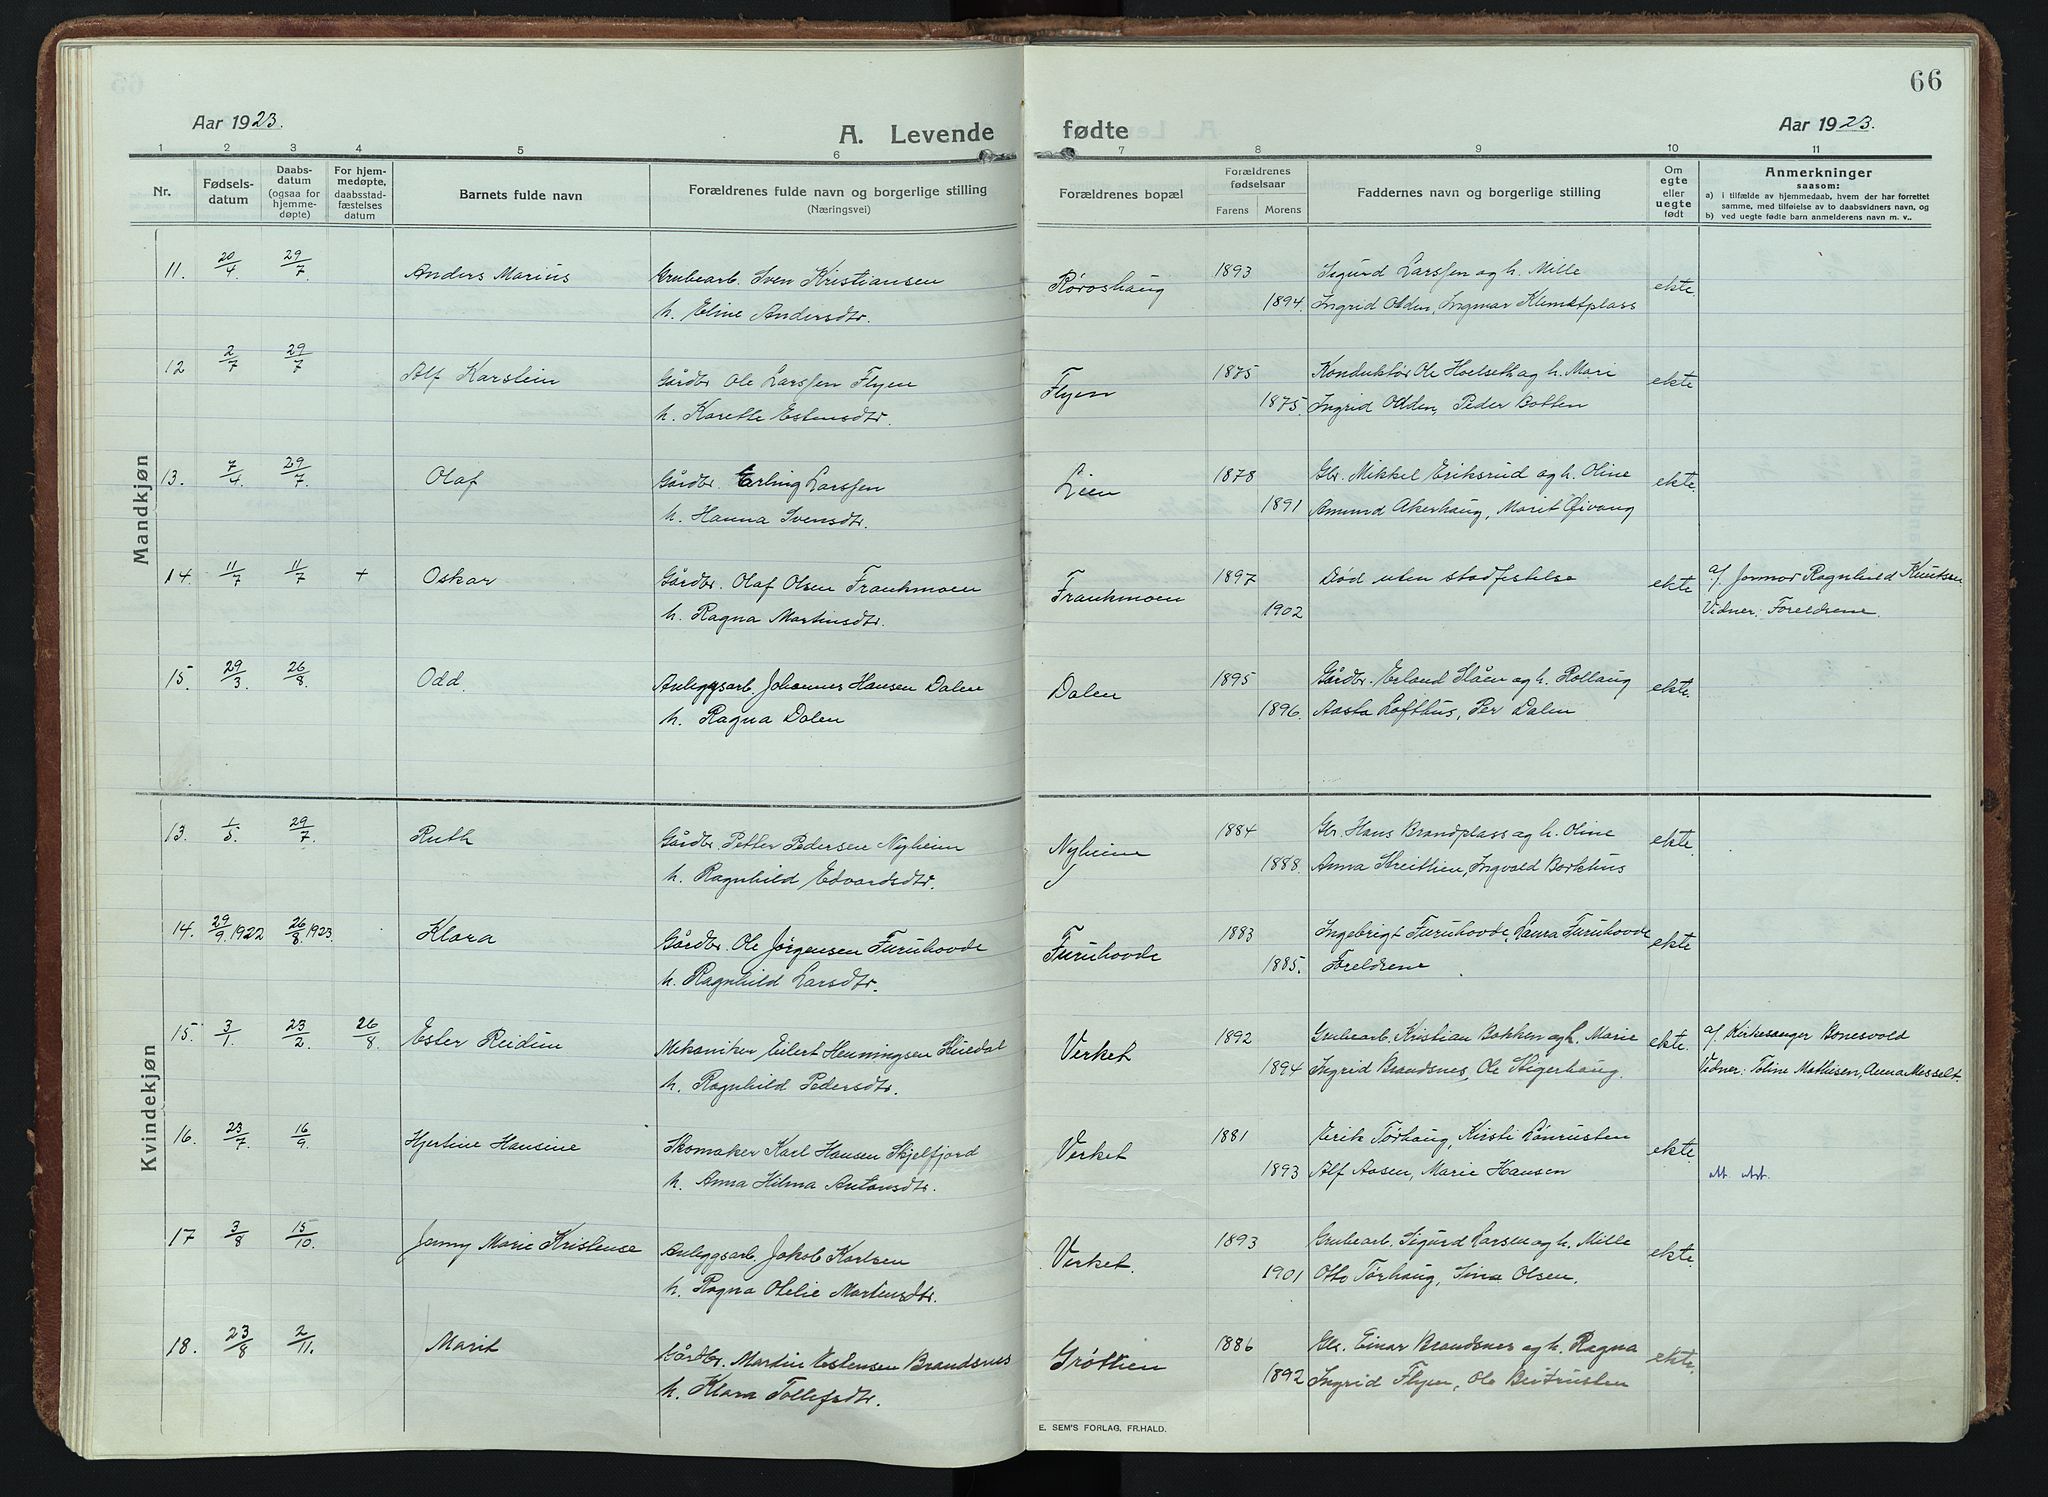 66
Aar 1923.
A. Levende fødte
Aar 1923.
1 2 3 4 5 6 7 8 9 10 11
Nr.
Fødselsdatum
Daabsdatum (ogsaa for hjemmedøpte)
For hjemmedøpte, daabsstadfæstelses datum
Barnets fulde navn
Forældrenes fulde navn og borgerlige stilling
(Næringsvei)
Forældrenes bopæl
Forældrenes fødselsaar
Farens Morens
Faddernes navn og borgerlige stilling
Om egte eller uegte født
Anmerkninger
saasom:
a) i tilfælde av hjemmedaab, hvem der har forrettet samme, med tilføielse av to daabsvidners navn, og
b) ved uegte fødte barn anmelderens navn m. v..
Mandkjøn
11. 20/4 29/7 Anders Marius Grubearb. Sven Kristiansen Røroshaug 1893 Sigurd Larssen og h. Mille ekte.
h. Eline Andersdtr. 1894. Ingrid Odden, Ingmar Klemetplass
12 2/7 29/7 Alf Karstein Gårdbr. Ole Larssen Flyen Flyen 1875 Konduktør Ole Hoelseth og h. Mari ekte
h. Karette Estensdtr. 1875. Ingrid Odden, Peder Botten
13. 7/4 29/7 Olaf Gårdbr. Erling Larssen Lien 1878 Gbr. Mikkel Eriksrud og h. Oline ekte.
h. Hanna Svensdtr. 1891 Amund Akerhaug, Marit Øivang
14. 11/7 11/7 + Oskar Gårdbr. Olaf Olsen Frankmoen Frankmoen 1897 Død uten stadfestelse ekte a/. Jormor Ragnhild Knutsen
h. Ragna Martinsdtr. 1902 Vidner: Foreldrene.
15. 29/3 26/8. Odd. Anleggsarb. Johannes Hansen Dalen Dalen 1895 Gårdbr. Erland Slåen og h. Rollaug ekte.
h. Ragna Dalen 1896. Aasta Lofthus, Per Dalen
Kvindekjøn
13. 1/5. 29/7 Ruth Gårdbr. Petter Pedersen Nyheim Nyheim 1884 Gbr. Hans Brandplass og h. Oline ekte.
h. Ragnhild Edvardsdtr. 1888. Anna Streitlien, Ingvald Borkhus
14. 29/9. 1922 26/8. 1923. Klara Gårdbr. Ole Jørgensen Furuhovde Furuhovde 1883 Ingebrigt Furuhovde, Laura Furuhovde ekte.
h. Ragnhild Larsdtr. 1885. Foreldrene
15. 3/1. 23/2. 26/8. Ester Reidun Mekaniker Eilert Henningsen Huedal Verket 1892 Grubearb. Kristian Bakken og h. Marie ekte. a/. Kirkesanger Bonesvold
h. Ragnhild Pedersdtr. 1894 Ingrid Brandsnes, Ole Stigerhaug. Vidner: Toline Mathisen, Anna Messelt.
16. 23/7. 16/9. Hjertine Hansine Skomaker Karl Hansen Skjelfjord Verket 1881 Erik Tørhaug, Kirsti Lønrusten ekte.
h. Anna Hilma Antonsdtr. 1893 Alf Aasen, Marie Hansen
17 3/8 15/10. Jenny Marie Kristense Anleggsarb. Jakob Karlsen Verket. 1893 Grubearb. Sigurd Larsen og h. Mille ekte.
h. Ragna Otelie Martensdtr. 1901 Otto Tørhaug, Sina Olsen.
18. 23/8 2/11. Marit Gårdbr. Martin Estensen Brandsnes Grøtlien 1886 Gbr. Einar Brandsnes og h. Ragna ekte.
h. Klara Tollefsdtr. 1892 Ingrid Flyen, Ole Beitrusten
E. SEM'S FORLAG, FR.HALD.